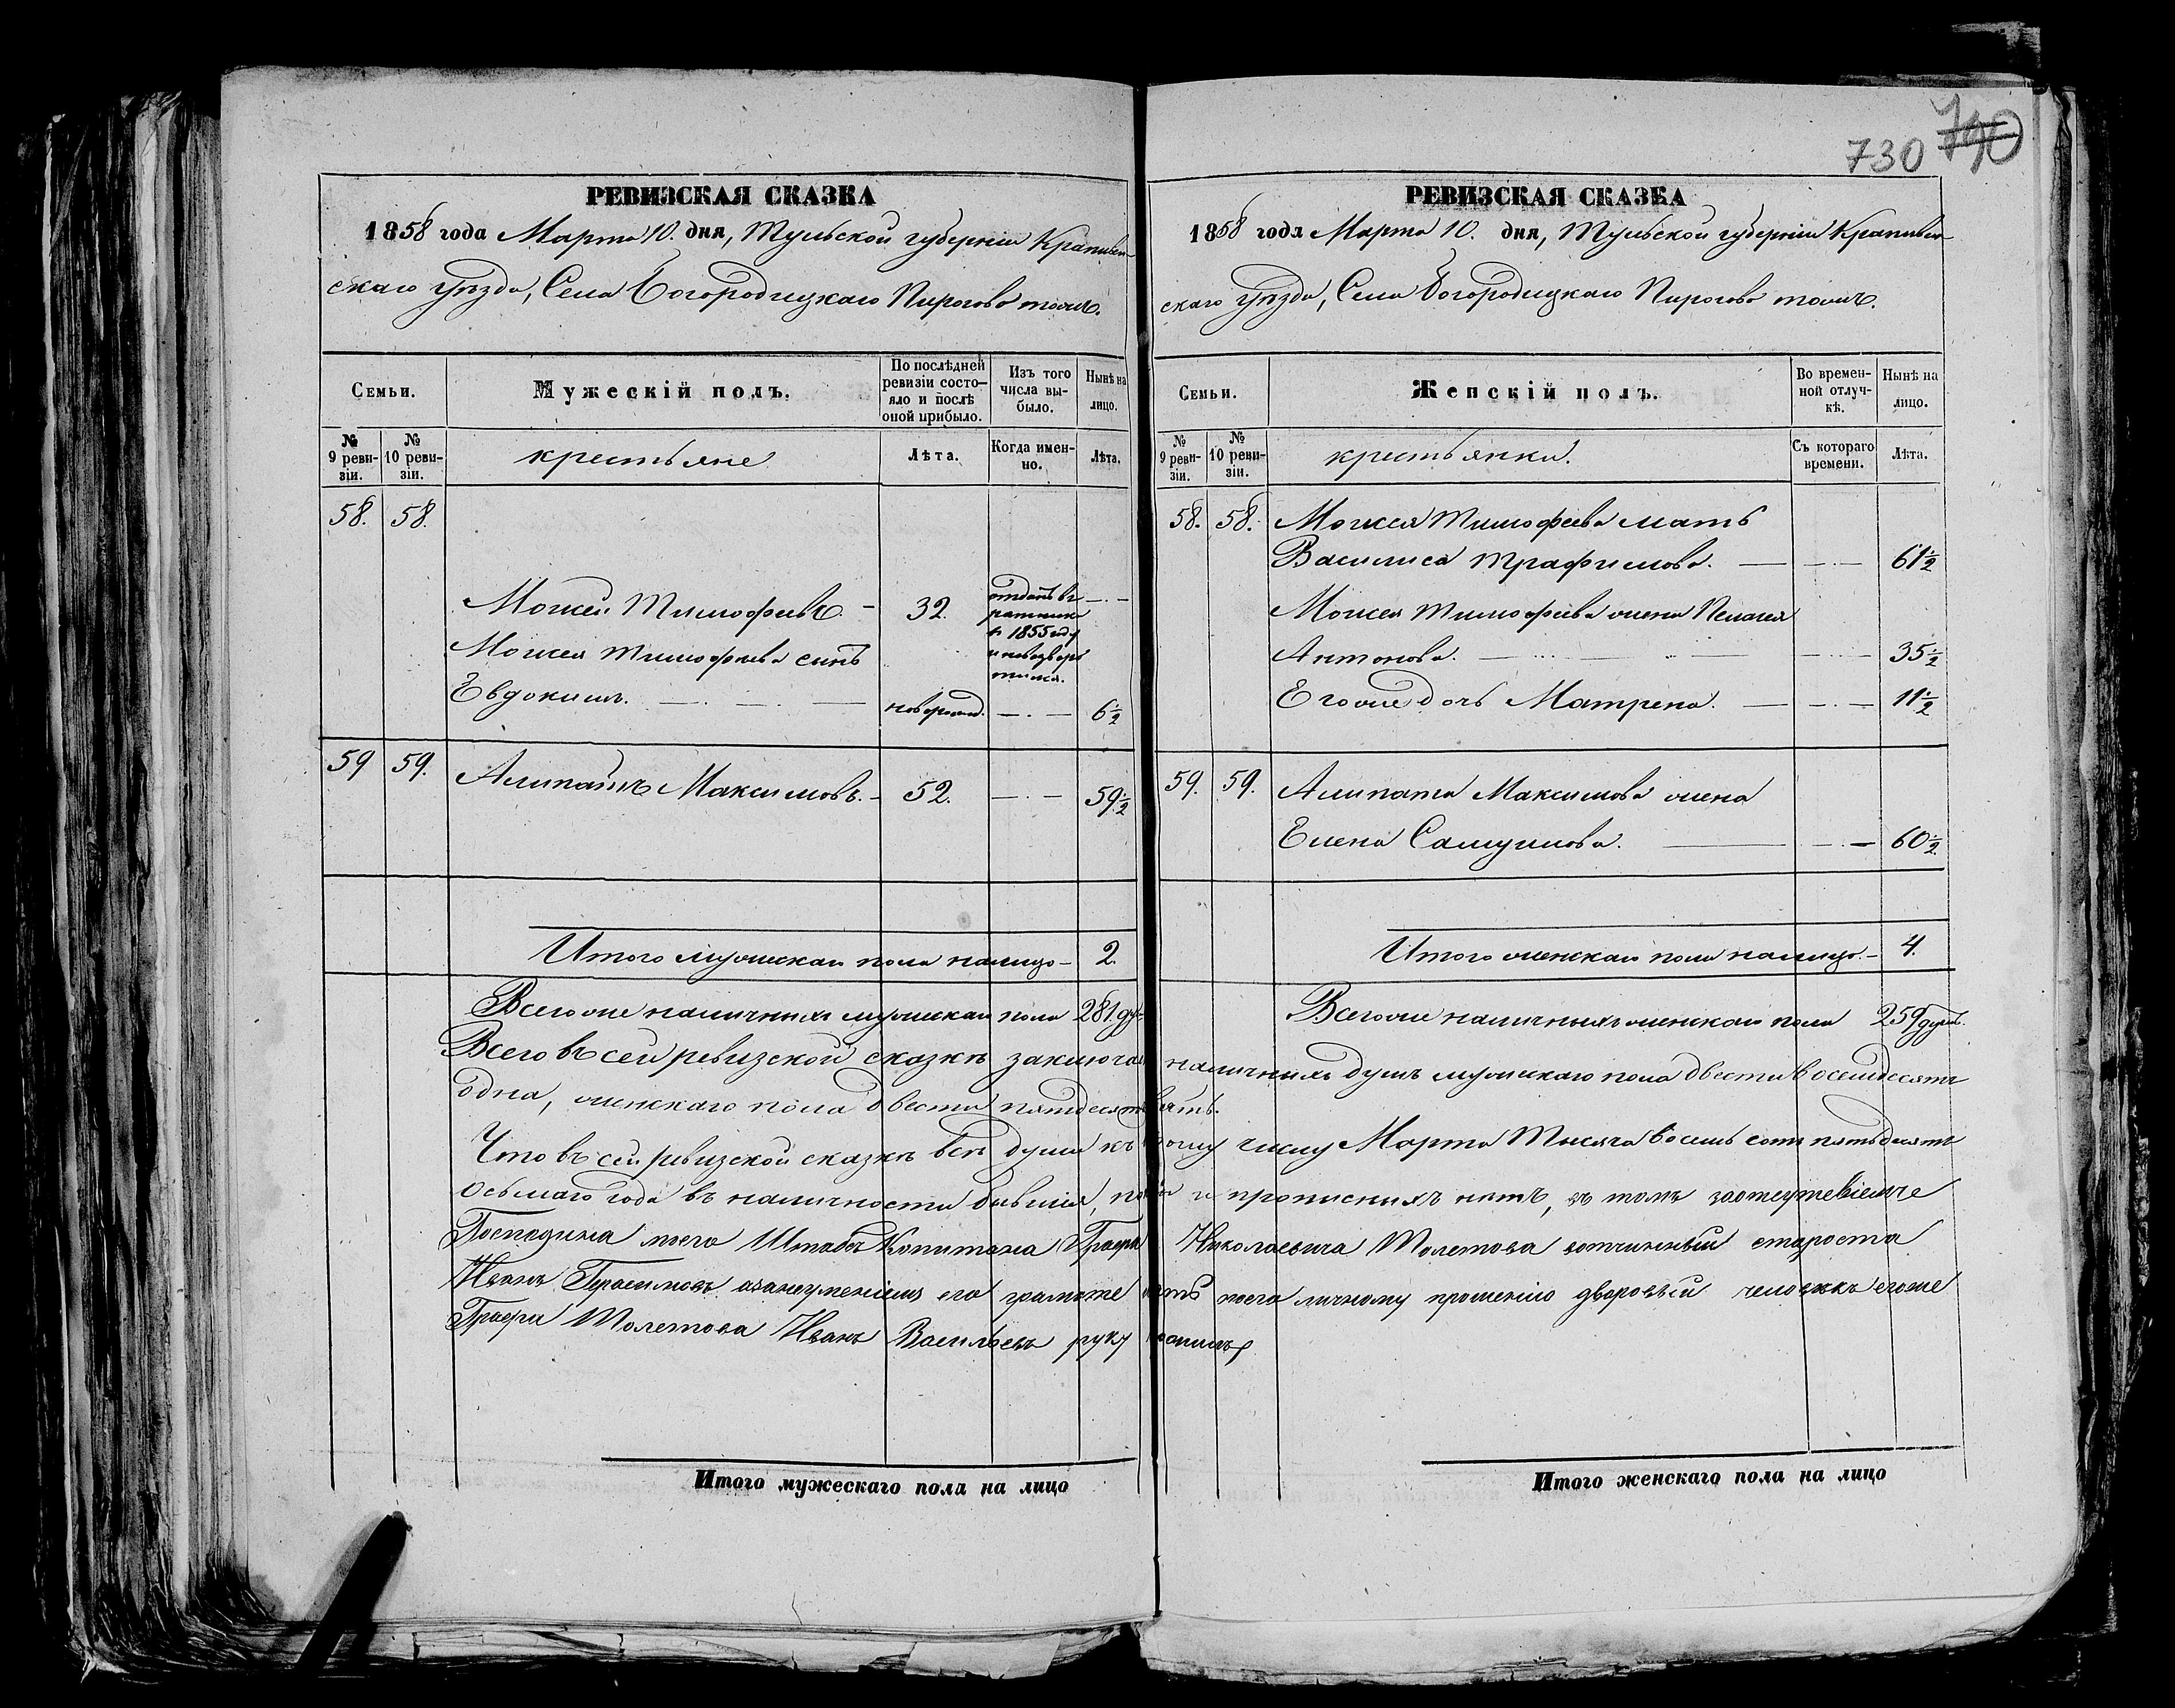 730 740
РЕВИЗСКАЯ СКАЗКА
1858 года Марта 10. дня, Тульской губерніи Крапивен-
скаго уѣзда, Села Богородицкаго Пирогово тожъ.
Семьи.
Мужескій полъ.
По послѣдней ревизіи состо-яло и послѣ оной прибыло.
Изъ того числа вы-было.
Нынѣ на лицо.
№ 9 реви-зіи.
№ 10 реви-зіи.
крестьяне
Лѣта.
Когда имен-но.
Лѣта.
58. 58.
Моисей Тимофеевъ. - 32. отданъ въ ратники въ 1855 году —·—
Моисея Тимофеева сынъ
Евдокимъ. новорожд. —·— 6½
59 59. Алипатъ Максимовъ. - 52. —·— 59½
Итого мужескаго пола налицо - 2.
Всегоже наличныхъ мужескаго пола 281. ду
РЕВИЗСКАЯ СКАЗКА
1858 года Марта 10. дня, Тульской губерніи Крапивен-
скаго уѣзда, Села Богородицкаго Пирогово тожъ.
Семьи.
Женскій полъ.
Во времен-ной отлуч-кѣ.
Нынѣ на лицо.
№ 9 реви-зіи.
№ 10 реви-зіи.
крестьянки.
Съ котораго времени.
Лѣта.
58. 58. Моисея Тимофеева мать
Василиса Трафимова. — —·— 61½
Моисея Тимофеева жена Пелагея
Антонова. — —·— 35½
Егоже дочь Матрена. — —·— 11½
59. 59. Алипата Максимова жена
Елена Самуилова. — —·— 60½
Итого женскаго пола налицо. - 4.
Всегоже наличныхъ женскаго пола 259 душъ.
Всего въ сей ревизской сказкѣ заключа наличныхъ душъ мужескаго пола двести восемдесятъ
одна, женскаго пола двести пятдесят вять.
Что въ сей ревизской сказкѣ всѣ души къ ому числу Марта Тысяча восемь сотъ пятьдесятъ
осьмаго года въ наличности бывшія, по ны и прописныхъ нѣтъ, въ томъ заотсутствіемъ
Господина моего Штабсъ Капитана Графа Николаевича Толстова вотчинный староста
Иванъ Герасимовъ азанеуменіемъ его грамоте моего личному прошенію дворовый человѣкъ егоже
Графа Толстова Иванъ Васильевъ руку
Итого мужескаго пола на лицо
Итого женскаго пола на лицо